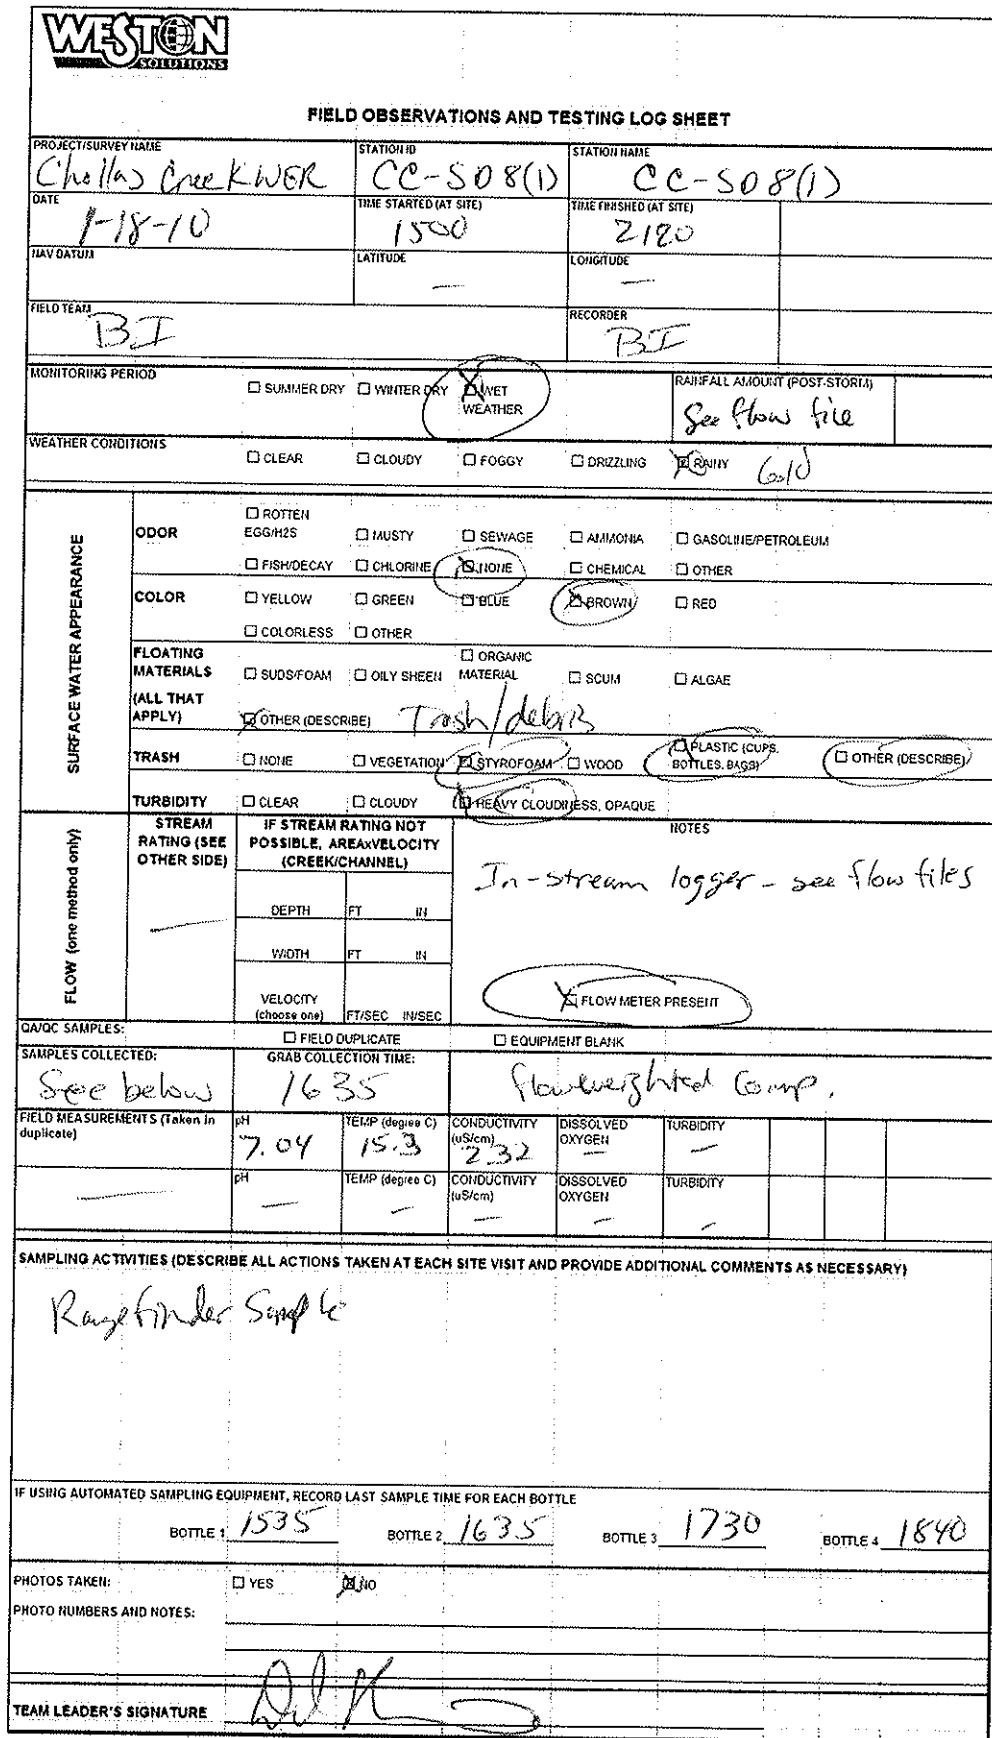 WESTON
SOLUTIONS
FIELD OBSERVATIONS AND TESTING LOG SHEET
PROJECT/SURVEY NAME STATION ID STATION NAME
Chollas Creek WER CC-SD8(1) CC-SD8(1)
DATE TIME STARTED (AT SITE) TIME FINISHED (AT SITE)
1-18-10 1500 2120
NAV DATUM LATITUDE LONGITUDE
— —
FIELD TEAM RECORDER
BI BI
MONITORING PERIOD ☐ SUMMER DRY ☐ WINTER DRY ☒ WET WEATHER RAINFALL AMOUNT (POST-STORM)
See flow file
WEATHER CONDITIONS ☐ CLEAR ☐ CLOUDY ☐ FOGGY ☐ DRIZZLING ☒ RAINY Cold
SURFACE WATER APPEARANCE
ODOR ☐ ROTTEN EGG/H2S ☐ MUSTY ☐ SEWAGE ☐ AMMONIA ☐ GASOLINE/PETROLEUM
☐ FISH/DECAY ☐ CHLORINE ☒ NONE ☐ CHEMICAL ☐ OTHER
COLOR ☐ YELLOW ☐ GREEN ☐ BLUE ☒ BROWN ☐ RED
☐ COLORLESS ☐ OTHER
FLOATING MATERIALS (ALL THAT APPLY) ☐ SUDS/FOAM ☐ OILY SHEEN ☐ ORGANIC MATERIAL ☐ SCUM ☐ ALGAE
☒ OTHER (DESCRIBE) Trash/debris
TRASH ☐ NONE ☐ VEGETATION ☒ STYROFOAM ☐ WOOD ☐ PLASTIC (CUPS, BOTTLES, BAGS) ☐ OTHER (DESCRIBE)
TURBIDITY ☐ CLEAR ☐ CLOUDY ☐ HEAVY CLOUDINESS, OPAQUE
FLOW (one method only)
STREAM RATING (SEE OTHER SIDE) IF STREAM RATING NOT POSSIBLE, AREAxVELOCITY (CREEK/CHANNEL) NOTES
In-stream logger - see flow files
— DEPTH FT IN
WIDTH FT IN
VELOCITY (choose one) FT/SEC IN/SEC ☒ FLOW METER PRESENT
QA/QC SAMPLES: ☐ FIELD DUPLICATE ☐ EQUIPMENT BLANK
SAMPLES COLLECTED: GRAB COLLECTION TIME:
See below 1635 flow weighted Comp.
FIELD MEASUREMENTS (Taken in duplicate) pH TEMP (degree C) CONDUCTIVITY (uS/cm) DISSOLVED OXYGEN TURBIDITY
7.04 15.3 232 — —
pH TEMP (degree C) CONDUCTIVITY (uS/cm) DISSOLVED OXYGEN TURBIDITY
— — — — — —
SAMPLING ACTIVITIES (DESCRIBE ALL ACTIONS TAKEN AT EACH SITE VISIT AND PROVIDE ADDITIONAL COMMENTS AS NECESSARY)
Rangefinder Sample
IF USING AUTOMATED SAMPLING EQUIPMENT, RECORD LAST SAMPLE TIME FOR EACH BOTTLE
BOTTLE 1 1535 BOTTLE 2 1635 BOTTLE 3 1730 BOTTLE 4 1840
PHOTOS TAKEN: ☐ YES ☒ NO
PHOTO NUMBERS AND NOTES:
TEAM LEADER'S SIGNATURE